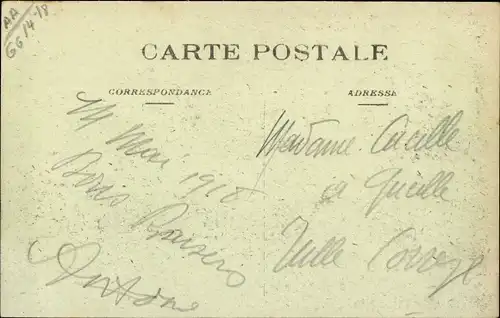 AA
G6/4-18
CARTE POSTALE
CORRESPONDANCE
ADRESSE
14 Mai 1918
Bons Baisers
Antoine
Madame
à
Tulle Corrèze